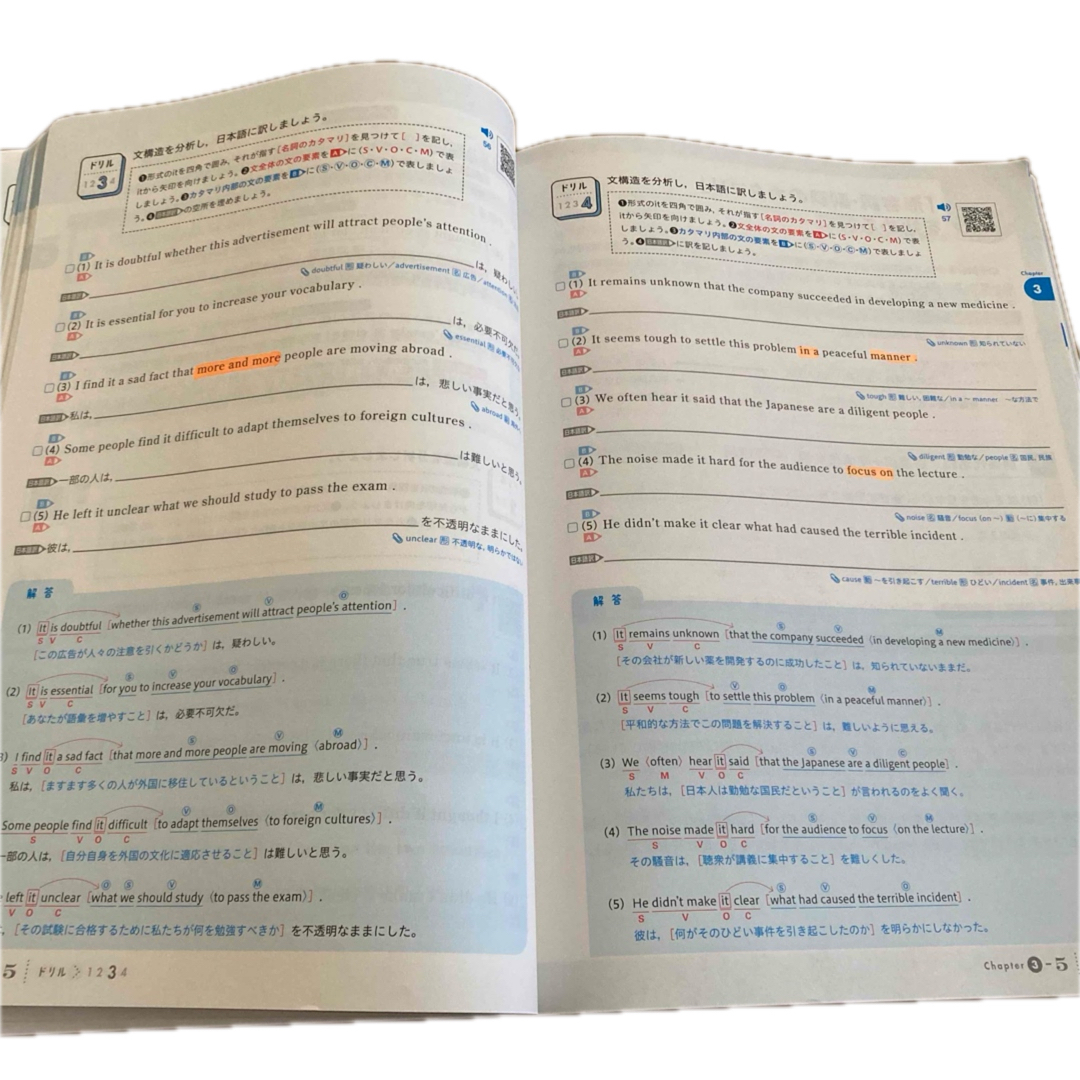 ドリル
1 2 3 4
文構造を分析し，日本語に訳しましょう。
❶形式のitを四角で囲み，それが指す[名詞のカタマリ]を見つけて[ ]を記し，
itから矢印を向けましょう。❷文全体の文の要素をAに(S・V・O・C・M)で表
しましょう。❸カタマリ内部の文の要素をBに(S・V・O・C・M)で表しましょ
う。❹日本語訳の空所を埋めましょう。
56
B
(1) It is doubtful whether this advertisement will attract people's attention .
A
日本語訳 は，疑わ
doubtful 形 疑わしい／advertisement 名 広告／attention
B
(2) It is essential for you to increase your vocabulary .
A
日本語訳 は，必要不可欠だ
essential 形
B
(3) I find it a sad fact that more and more people are moving abroad .
A
日本語訳 私は， は，悲しい事実だと思う。
abroad
B
(4) Some people find it difficult to adapt themselves to foreign cultures .
A
日本語訳 一部の人は， は難しいと思う。
B
(5) He left it unclear what we should study to pass the exam .
A
日本語訳 彼は， を不透明なままにした。
unclear 形 不透明な，明らかでは
解答
S V O
(1) It is doubtful [whether this advertisement will attract people's attention] .
S V C
[この広告が人々の注意を引くかどうか] は，疑わしい。
S V O
(2) It is essential [for you to increase your vocabulary] .
S V C
[あなたが語彙を増やすこと] は，必要不可欠だ。
S V M
3) I find it a sad fact [that more and more people are moving 〈abroad〉] .
S V O C
私は，[ますます多くの人が外国に移住しているということ] は，悲しい事実だと思う。
V O M
Some people find it difficult [to adapt themselves 〈to foreign cultures〉] .
S V O C
一部の人は，[自分自身を外国の文化に適応させること] は難しいと思う。
O S V M
left it unclear [what we should study 〈to pass the exam〉] .
V O C
[その試験に合格するために私たちが何を勉強すべきか] を不透明なままにした。
5 ドリル 1 2 3 4
ドリル
1 2 3 4
文構造を分析し，日本語に訳しましょう。
❶形式のitを四角で囲み，それが指す[名詞のカタマリ]を見つけて[ ]を記し，
itから矢印を向けましょう。❷文全体の文の要素をAに(S・V・O・C・M)で表
しましょう。❸カタマリ内部の文の要素をBに(S・V・O・C・M)で表しましょ
う。❹日本語訳に訳を記しましょう。
57
Chapter
3
B
(1) It remains unknown that the company succeeded in developing a new medicine .
A
日本語訳
unknown 形 知られていない
B
(2) It seems tough to settle this problem in a peaceful manner .
A
日本語訳
tough 形 難しい，困難な／in a ～ manner ～な方法で
B
(3) We often hear it said that the Japanese are a diligent people .
A
日本語訳
diligent 形 勤勉な／people 名 国民，民族
B
(4) The noise made it hard for the audience to focus on the lecture .
A
日本語訳
noise 名 騒音／focus (on ～) 動 (～に)集中する
B
(5) He didn't make it clear what had caused the terrible incident .
A
日本語訳
cause 動 ～を引き起こす／terrible 形 ひどい／incident 名 事件，出来事
解答
S V M
(1) It remains unknown [that the company succeeded 〈in developing a new medicine〉] .
S V C
[その会社が新しい薬を開発するのに成功したこと] は，知られていないままだ。
V O M
(2) It seems tough [to settle this problem 〈in a peaceful manner〉] .
S V C
[平和的な方法でこの問題を解決すること] は，難しいように思える。
S V C
(3) We 〈often〉 hear it said [that the Japanese are a diligent people] .
S M V O C
私たちは，[日本人は勤勉な国民だということ] が言われるのをよく聞く。
S V M
(4) The noise made it hard [for the audience to focus 〈on the lecture〉] .
S V O C
その騒音は，[聴衆が講義に集中すること] を難しくした。
S V O
(5) He didn't make it clear [what had caused the terrible incident] .
S V O C
彼は，[何がそのひどい事件を引き起こしたのか] を明らかにしなかった。
Chapter 3-5